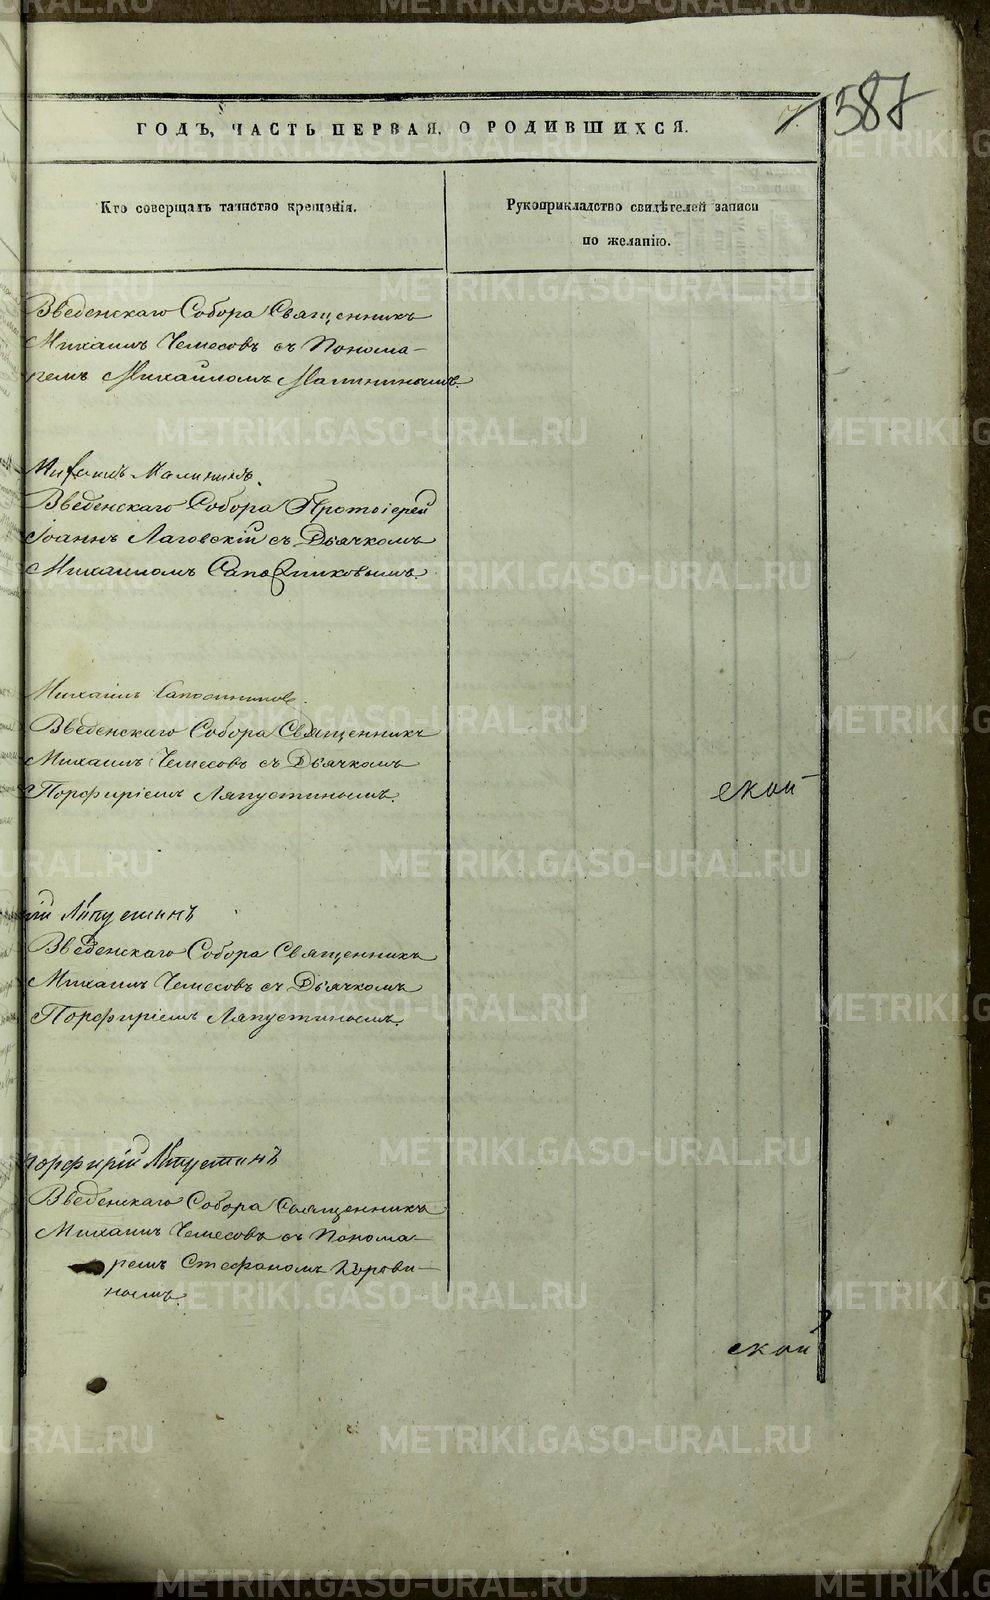 ГОДЪ, ЧАСТЬ ПЕРВАЯ, О РОДИВШИХСЯ.
7. 587
Кто совершалъ таинство крещенія.
Рукоприкладство свидѣтелей записи
по желанію.
Введенскаго Собора Священникъ
Михаилъ Чемесовъ съ Понома-
ремъ Михаиломъ Малининымъ.
Михаилъ Малининъ.
Введенскаго Собора Протоіерей
Іоаннъ Лаговскій съ Дьячкомъ
Михаиломъ Сапожниковымъ.
Михаилъ Сапожниковъ.
Введенскаго Собора Священникъ
Михаилъ Чемесовъ съ Дьячкомъ
Порфиріемъ Ляпустинымъ.
ской
рій Ляпустинъ
Введенскаго Собора Священникъ
Михаилъ Чемесовъ съ Дьячкомъ
Порфиріемъ Ляпустинымъ.
Порфирій Ляпустинъ
Введенскаго Собора Священникъ
Михаилъ Чемесовъ съ Понома-
ремъ Стефаномъ Корови-
нымъ.
ской
METRIKI.GASO-URAL.RU